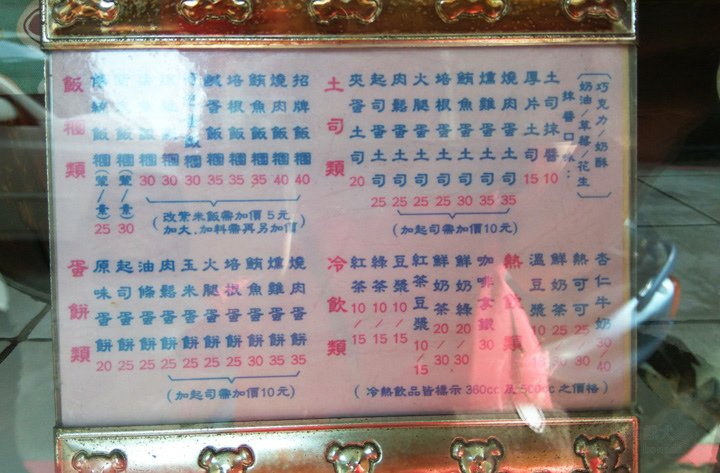 飯糰類
飯糰(葷/素)25
飯糰(葷/素)30
飯糰30
飯糰30
飯糰30
鹹蛋飯糰35
培根飯糰35
鮪魚飯糰35
燒肉飯糰40
招牌飯糰40
(改紫米飯需加價5元
加大、加料需再另加價)
土司類
夾蛋土司20
起司蛋土司25
肉鬆蛋土司25
火腿蛋土司25
培根蛋土司25
鮪魚蛋土司30
燻雞蛋土司35
燒肉蛋土司35
厚片土司15
土司抹醬10
抹醬口味:
(巧克力/奶酥
奶油/草莓/花生)
(加起司需加價10元)
蛋餅類
原味蛋餅20
起司蛋餅25
油條蛋餅25
肉鬆蛋餅25
玉米蛋餅25
火腿蛋餅25
培根蛋餅25
鮪魚蛋餅
燻雞蛋餅
燒肉蛋餅35
(加起司需加價10元)
冷飲類
紅茶10/15
綠茶10/15
豆漿10/15
紅茶豆漿10/15
鮮奶茶20/30
鮮奶綠20/30
咖啡拿鐵30
熱飲類
溫豆漿10/15
鮮奶25/30
熱可可25/30
杏仁牛奶30/40
(冷熱飲品皆標示360cc及500cc之價格)